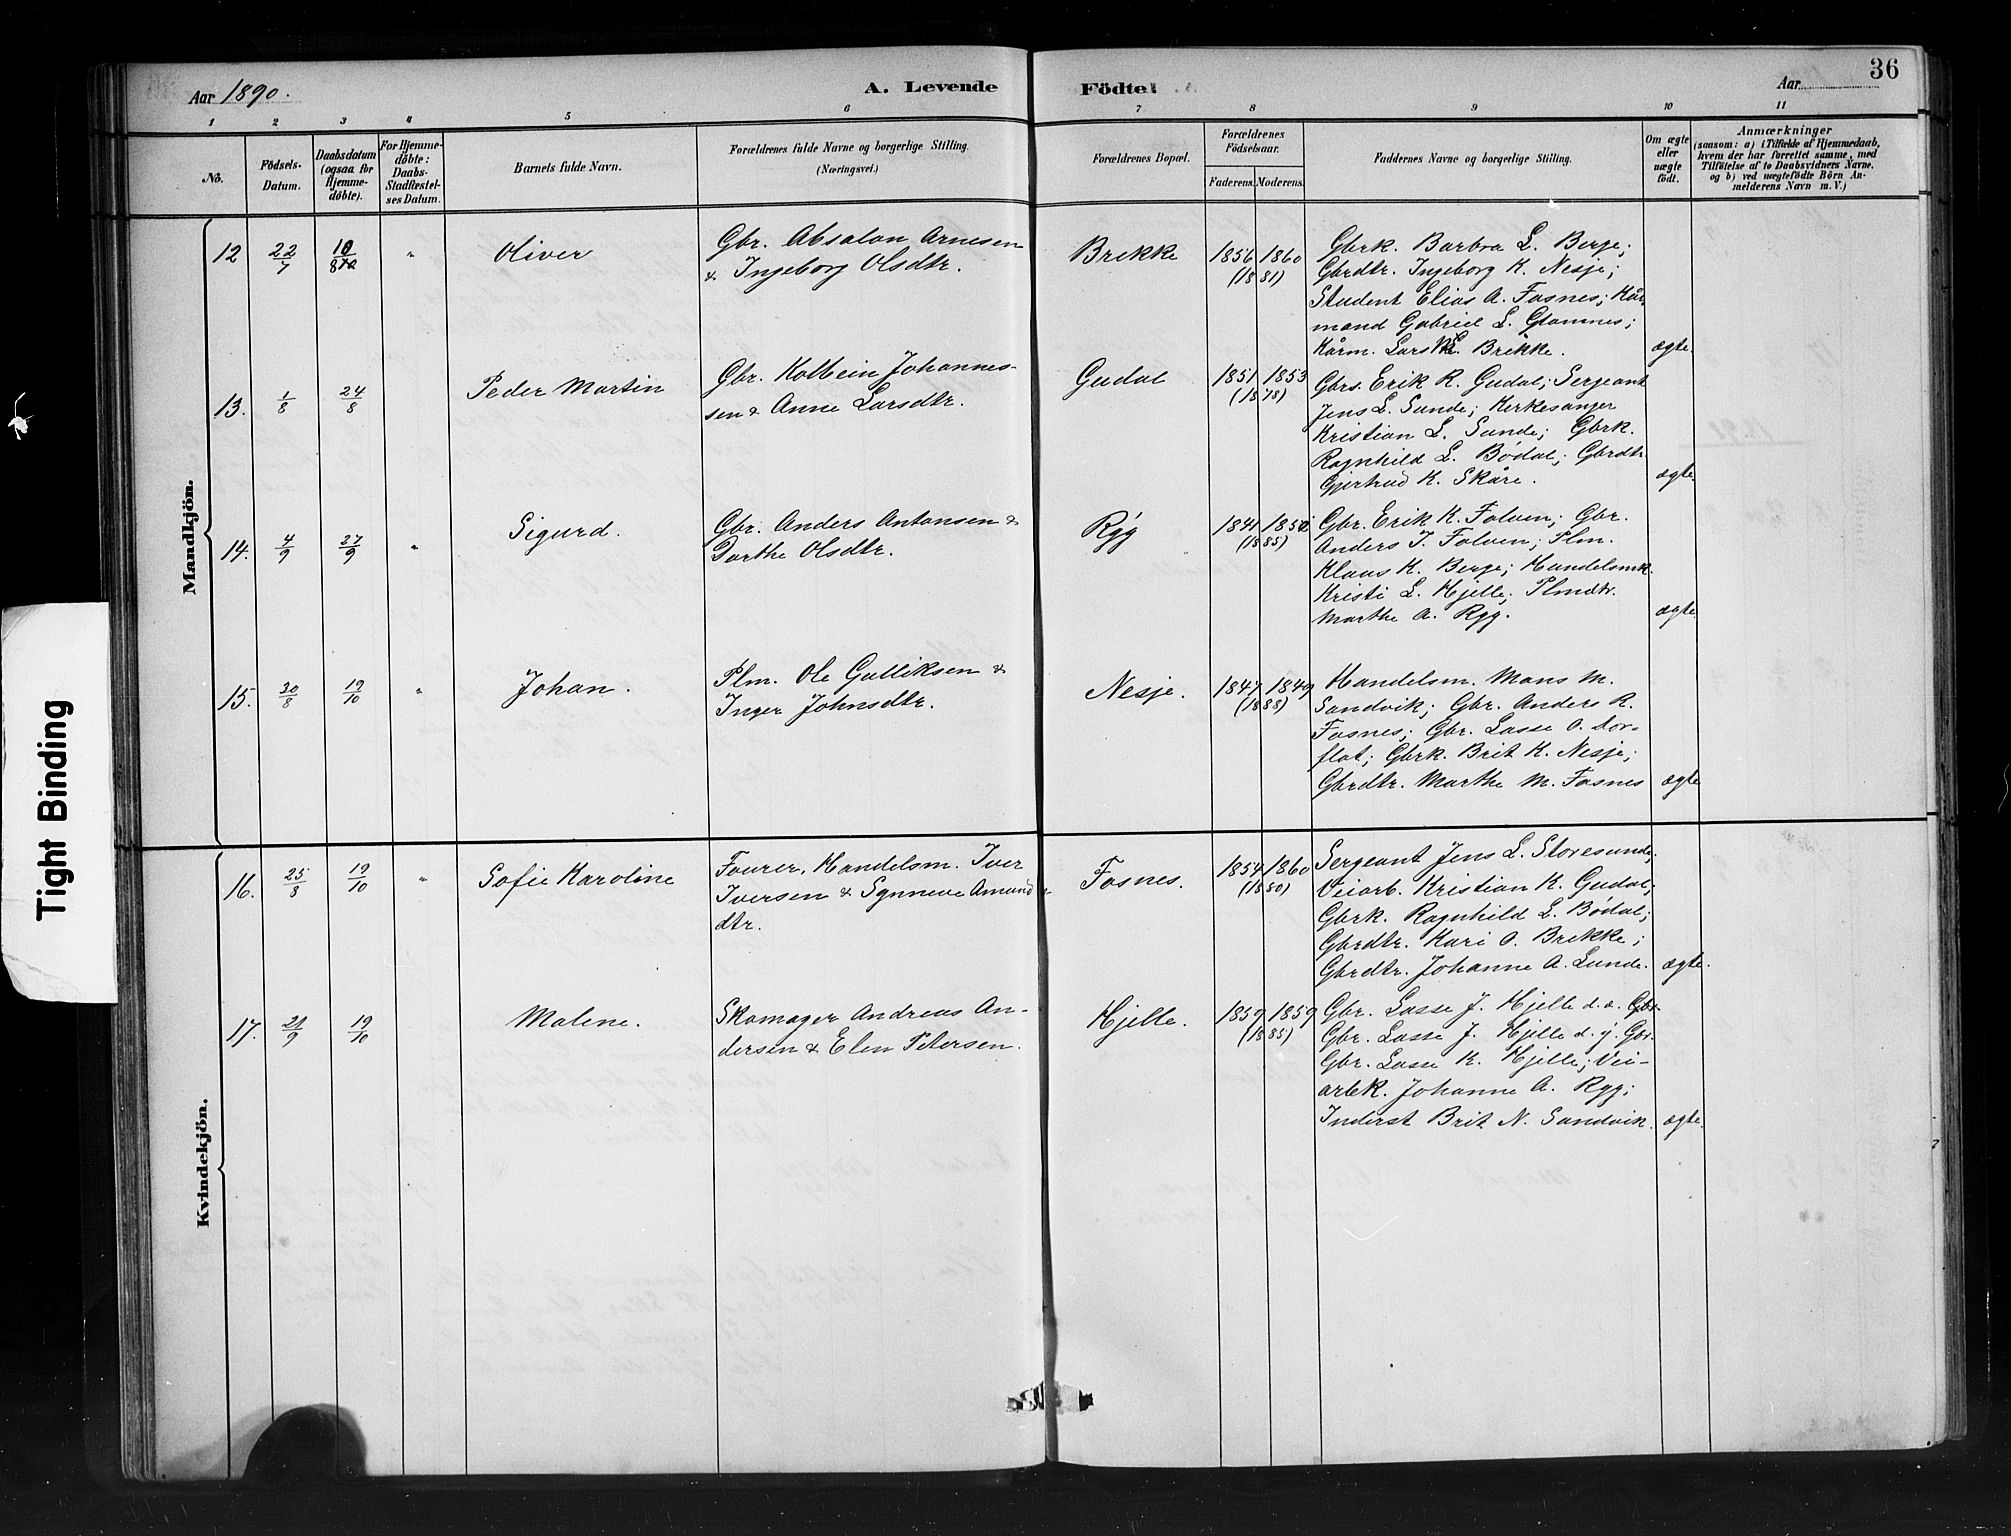 Aar 1890.
A. Levende
Födte.
Aar
36
1
2
3
4
5
6
7
8
9
10
11
No.
Födsels-
Datum.
Daabsdatum
(ogsaa for
Hjemme-
döbte).
For Hjemme-
döbte:
Daabs-
Stadfæstel-
ses Datum.
Barnets fulde Navn.
Forældrenes fulde Navne og borgerlige Stilling.
(Næringsvei.)
Forældrenes Bopæl.
Forældrenes
Födselsaar.
Faderens.
Moderens.
Faddernes Navne og borgerlige Stilling.
Om ægte
eller
uægte
födt.
Anmærkninger
(saasom: a) i Tilfælde af Hjemmedaab,
hvem der har forrettet samme, med
Tilföielse af to Daabsvidners Navne.
og b) ved uægtefödte Börn An-
melderens Navn m. V.)
Mandkjön.
12
22/7
10/8
"
Oliver
Gbr. Absalon Arnesen
& Ingeborg Olsdtr.
Brekke
1856 1860
(1881)
Gbrk. Barbra L. Berje;
Gbrdtr. Ingeborg K. Nesje;
Student Elias A. Fosnes; Kår-
mand Gabriel L. Glomnes;
Kårm. Lars L. Brekke.
ægte.
13.
1/8
24/8
Peder Martin
Gbr. Kolbein Johannes-
sen & Anne Larsdtr.
Gudal
1851 1853
(1878)
Gbrs. Erik R. Gudal; Sergeant
Jens L. Sunde; Kerkesanger
Kristian L. Sunde; Gbrk.
Ragnhild L. Bødal; Gbrdtr.
Gjertrud K. Skåre.
ægte.
14.
4/9
27/9
"
Sigurd.
Gbr. Anders Antonsen &
Dorthe Olsdtr.
Rgg
1841 1850
(1885)
Gbr. Erik K. Folven; Gbr.
Anders J. Folven; Plm.
Klaus K. Berje; Handelsmk.
Kristi L. Hjelle; Plmdtr.
Marthe A. Rgg.
ægte.
15.
30/8
19/10
"
Johan.
Plm. Ole Gulliksen &
Inger Johnsdtr.
Nesje.
1847 1849
(1888)
Handelsm. Mons M.
Sandvik; Gbr. Anders R.
Fosnes; Gbr. Lasse O. Tor-
flot; Gbrk. Brit K. Nesje;
Gbrdtr. Marthe M. Fosnes
ægte
Kvindekjön.
16.
25/8
19/10
"
Sofie Karoline
Fourer, Handelsm. Iver
Iversen & Synneve Amund
dtr.
Fosnes.
1854 1860
(1880)
Sergeant Jens L. Storesunde;
Veiarb. Kristian K. Gudal;
Gbrk. Ragnhild L. Bødal;
Gbrdtr. Kari O. Brekke;
Gbrdtr. Johanne A. Lunde.
ægte.
17.
21/9
19/10
Malene.
Skomager Andreas An-
dersen & Elen Petersen.
Hjelle.
1859 1859
(1885)
Gbr. Lasse J. Hjelle d. æ. Gbr.
Gbr. Lasse J. Hjelle d. y. Gbr.
Gbr. Lasse K. Hjelle; Vei-
arbk. Johanne A. Rgg;
Inderst Brit N. Sandvik.
ægte.
Tight Binding